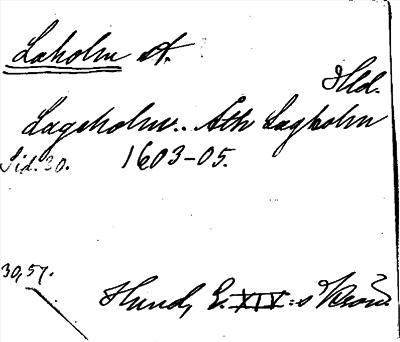 Laholm st.
Hld.
Lageholm.. Sth Lagholm
Sid. 30. 1603-05.
30,57.
Hund, E. XIV:s Krön.